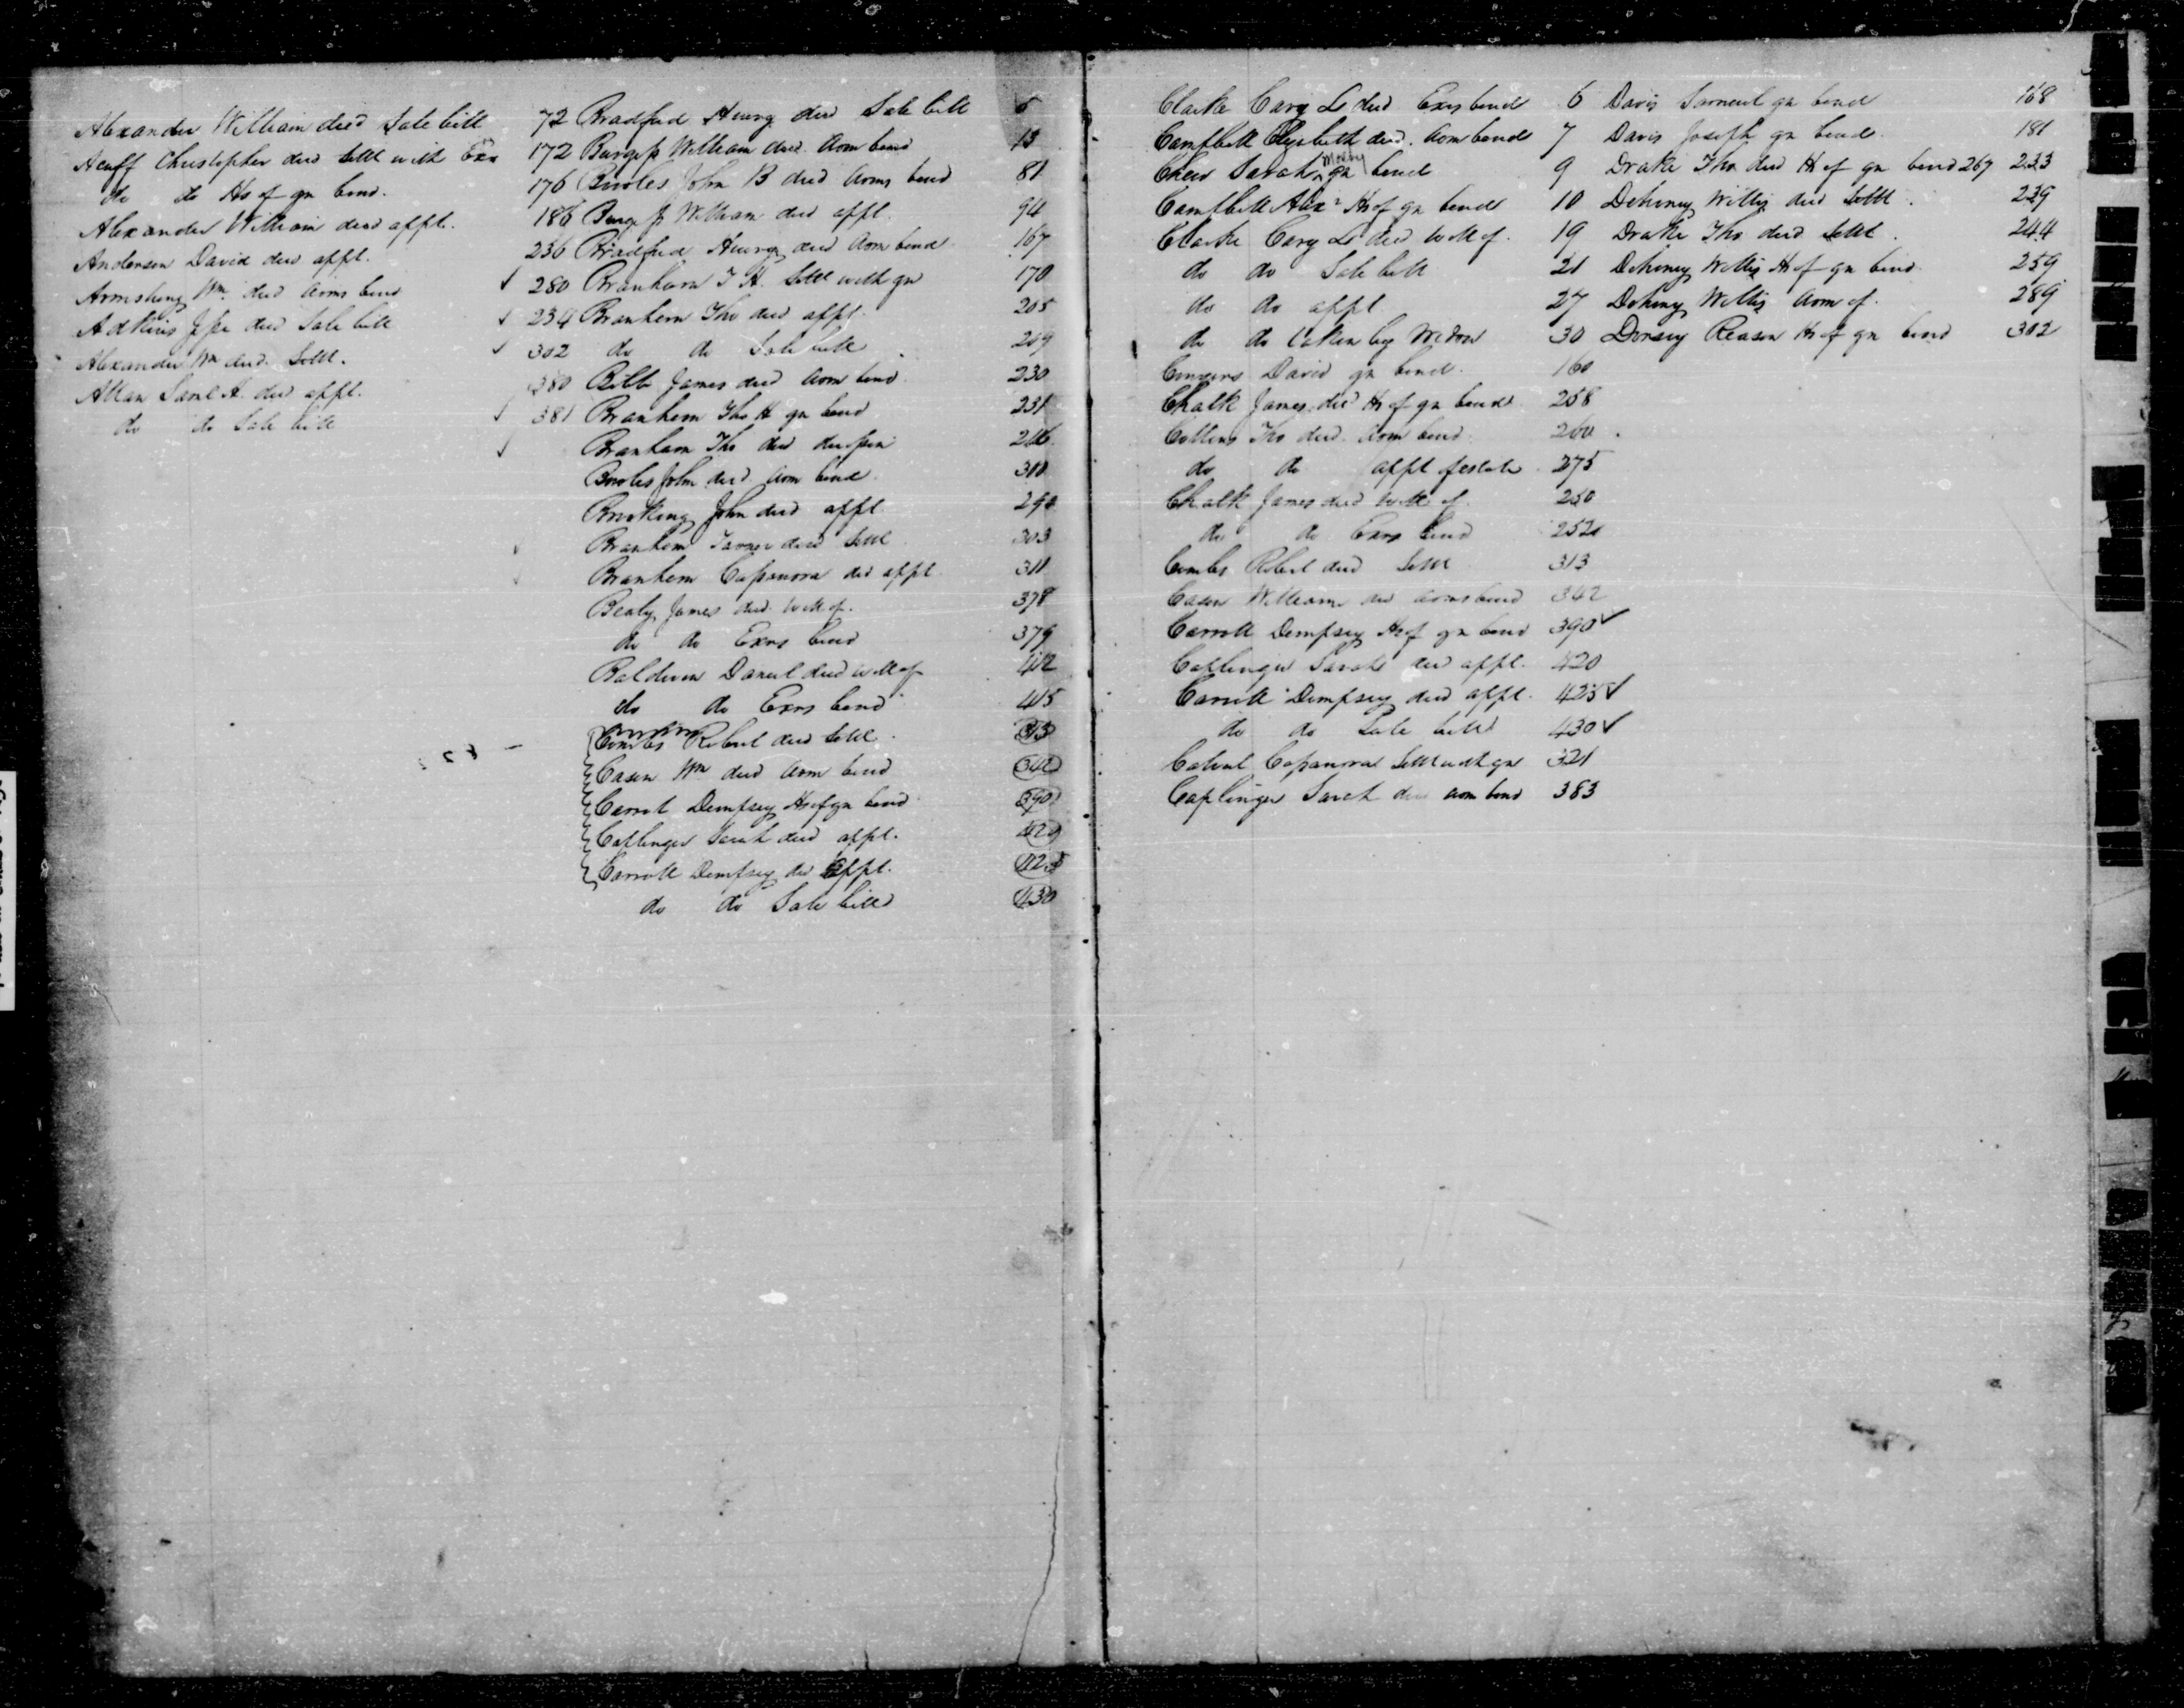 Alexander William dec'd Sale bill 72
Acuff Christopher decd settl with Exr 172
do do Hs of gn bond. 176
Alexander William decd appt. 186
Anderson David decd appt. 236
Armstrong Wm decd Adms bond 280
Adkins Jesse decd Sale bill 239
Alexander Wm decd. Settl. 302
Allan Saml A. decd appt. 380
do do Sale bill 381
Bradford Henry decd Sale bill 5
Burgess William decd. Adm bond 13
Bowles John B decd Adms bond 81
Burgess William decd appt. 94
Bradford Henry decd Adm bond 167
Branham T H. Settl with gn 170
Branham Tho decd appt. 205
do do Sale bill 209
Bill James decd Adm bond 230
Branham Tho H gn bond 231
Branham Tho decd
Bowles John decd Adm bond 310
Brooking John decd appt. 290
Branham Tavner decd Settl 303
Branham decd appt 311
Bealy James decd. will of. 378
do do Exrs bond 379
Baldwin Daniel decd will of 412
do do Exrs bond 415
Combs Robert decd Settl. 313
Cason Wm decd Adm bond 342
Carrol Dempsey Hs of gn bond 390
Caplinger Sarah decd appt. 420
Carroll Dempsey decd appt. 425
do do Sale bill 430
Clarke Cary L decd Exrs bond 6
Campbell Elizabeth decd. Adm bond 7
Chew Sarah Mosby gn bond 9
Campbell Alexr Hs of gn bond 10
Clarke Cary L decd will of. 19
do do Sale bill 21
do do appt 27
do do taken by Widow 30
David gn bond. 160
Chalk James decd Hs of gn bond 258
Collins Tho decd. Adm bond. 260
do do appt of estate 275
Chalk James decd will of 250
do do Exrs bond 252
Combs Robert decd Settl 313
Cason William decd Adms bond 342
Carroll Dempsey Hs of gn bond 390
Caplinger Sarah decd appt. 420
Carroll Dempsey decd appt. 425
do do Sale bill 430
Settl with gn 321
Caplinger Sarah decd Adm bond 383
Davis Samuel gn bond 168
Davis Joseph gn bond. 181
Drake Tho decd Hs of gn bond 267 233
Dehoney Willis decd Settl. 239
Drake Tho decd Settl. 244
Dehoney Willis Hs of gn bond 259
Dehoney Willis Adm of. 289
Dorsey Reason Hs of gn bond 302